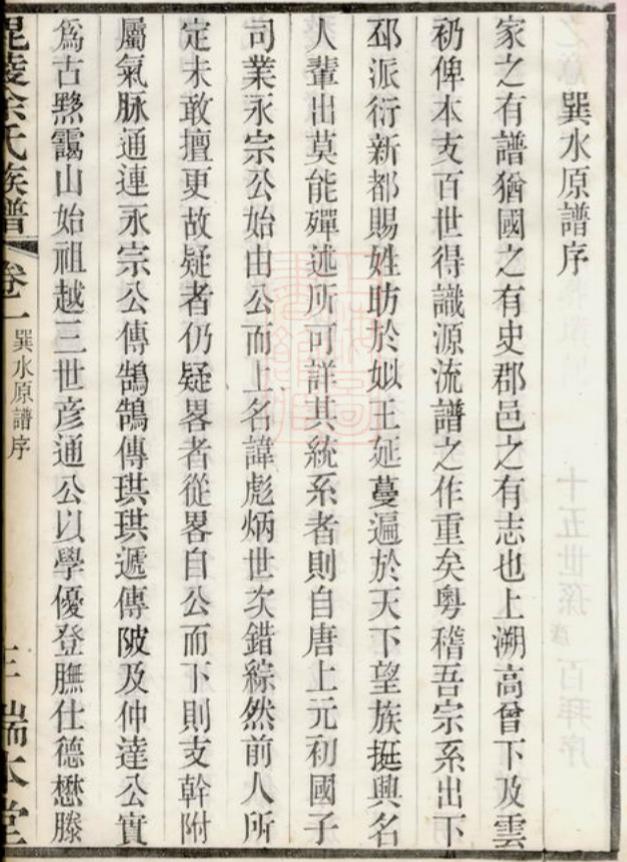 巽水原譜序
家之有譜猶國之有史郡邑之有志也上溯高曾下及雲
礽俾本支百世得識源流譜之作重矣粵稽吾宗系出下
邳派衍新都賜姓昉於姒王延蔓遍於天下望族挺興名
人輩出莫能殫述所可詳其統系者則自唐上元初國子
司業永宗公始由公而上名諱彪炳世次錯綜然前人所
定未敢擅更故疑者仍疑畧者從畧自公而下則支幹附
屬氣脉通連永宗公傳鵠鵠傳珙珙遞傳陂及仲達公實
為古黟靄山始祖越三世彦通公以學優登膴仕德懋滕
毘陵余氏族譜 卷一 巽水原譜序 三 瑞本堂